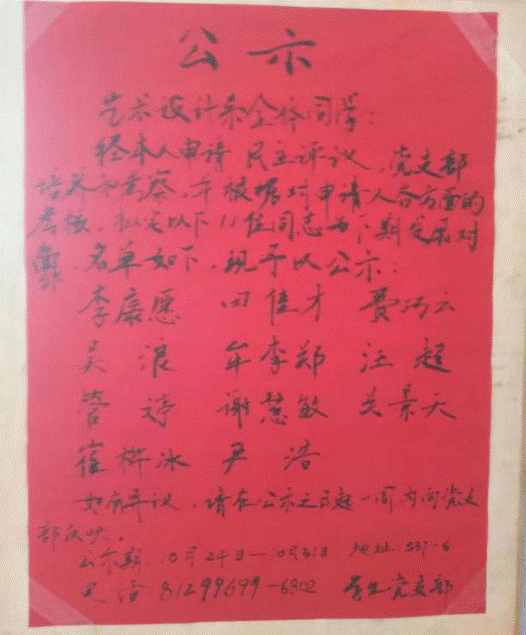 公示
艺术设计系全体同学：
经本人申请、民主评议、党支部
培养和考察，并根据对申请人各方面的
考察，拟定以下11位同志为期发展对
象，名单如下，现予以公示：
李康愿 田佳才 费巧云
吴浪 牟李郑 汪超
管婷 谢慧敏 关景天
崔桦冰 尹浩
如有异议，请在公示之日起一周内向党支
部反映。
公示期：10月24日—10月31日 地址：537-6
电话：81299699-6802 学生党支部